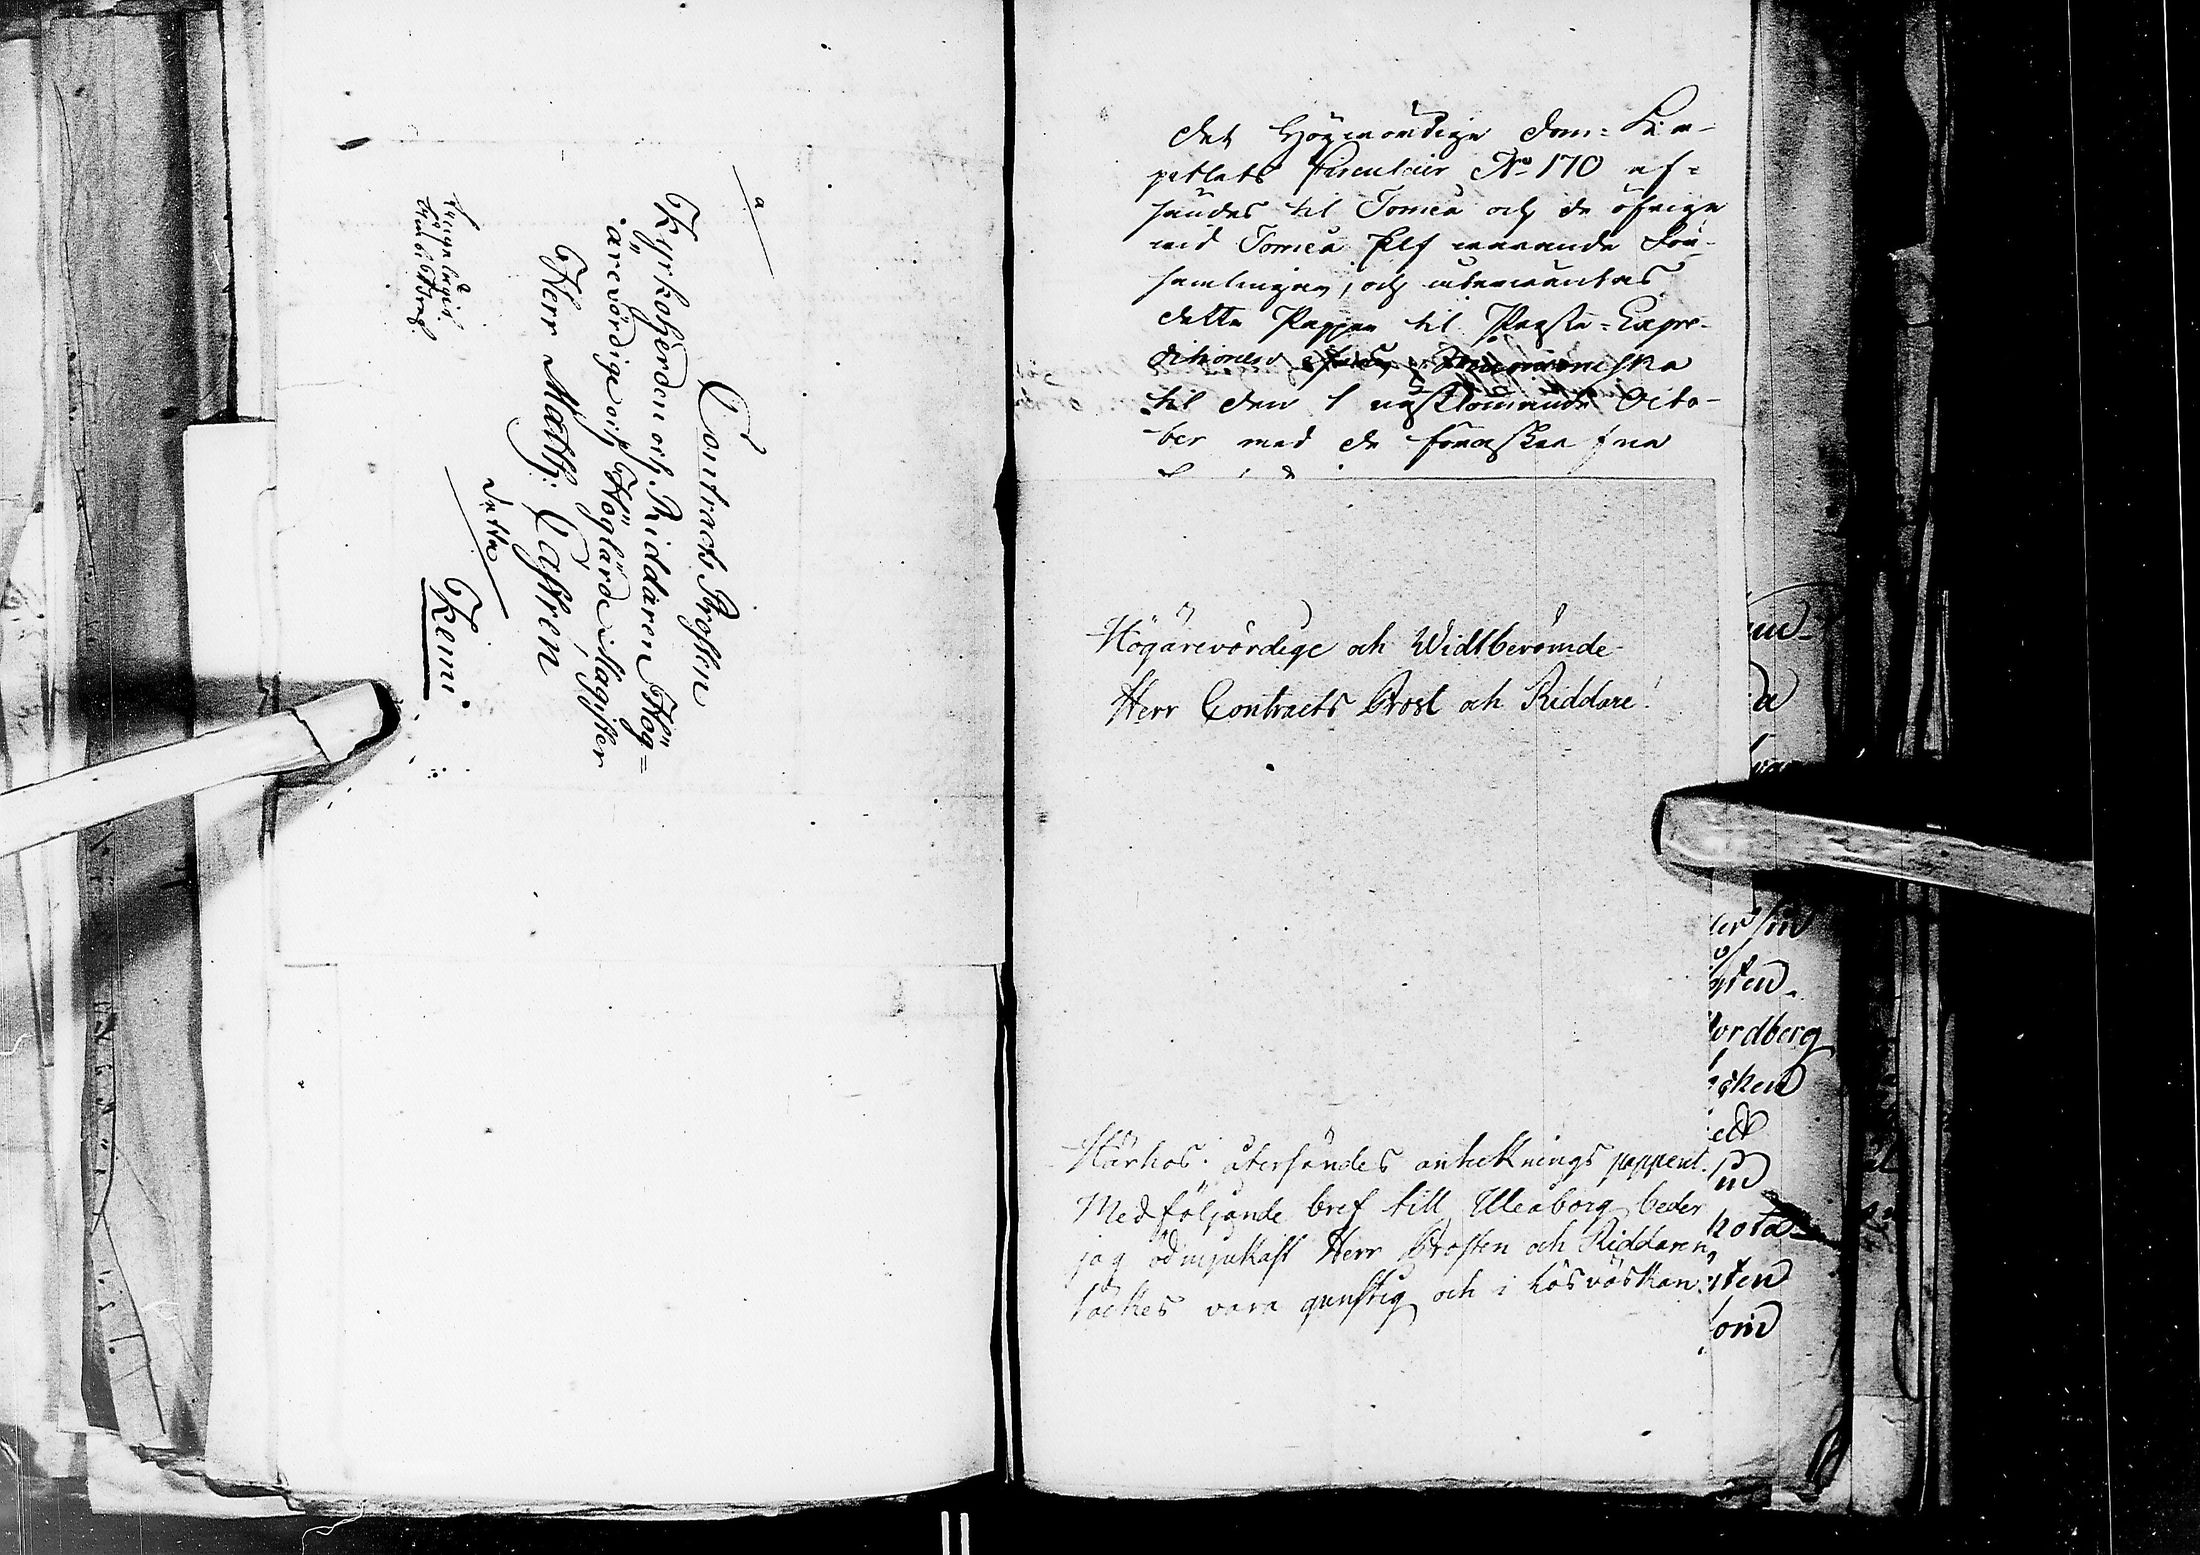 a
Contracts Prosten
Kyrkoherden och Riddaren Hög=
ärevördige och Höglärde Magister
Herr Matth: Castren
detta
Kemi.
Det Högwördige Dom=Ka-
pitlets Circulair No 170 af=
sändes til Torneå och de öfrige
wid Torneå Elf warande För-
samlingar, och återwäntas
detta Papper til Proste=Expe-
ditionen
til den 1 nästkommande Octo-
ber med de
Högärevördige och Widtberömde
Herr Contracts Prost och Riddare!
Härhos återsändes anteknings papperet.
Medföljande bref till Uleåborg beder
jag ödmjukast Herr Prosten och Riddaren
täckes vara gunstig och i lösväskan
ordberg
sten